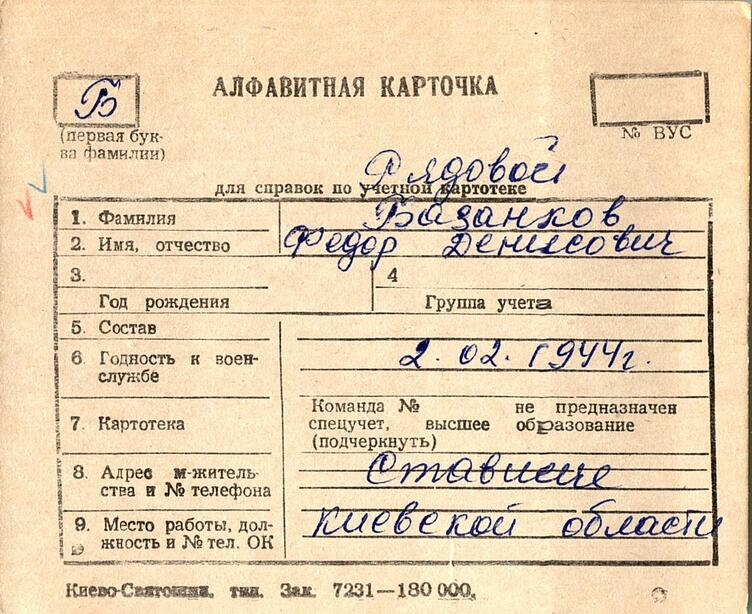 Б
АЛФАВИТНАЯ КАРТОЧКА
(первая бук-
ва фамилии)
№ ВУС
Рядовой
для справок по учетной картотеке
1. Фамилия Базанков
2. Имя, отчество Федор Денисович
3.
Год рождения
4
Группа учета
5. Состав
6. Годность к воен-
службе
2.02.1944г.
7. Картотека
Команда № не предназначен
спецучет, высшее образование
(подчеркнуть)
8. Адрес м-житель-
ства и № телефона
Ставище
9. Место работы, дол-
жность и № тел. ОК
Киевской области
Киево-Святошин. тип. Зак. 7231—180 000.